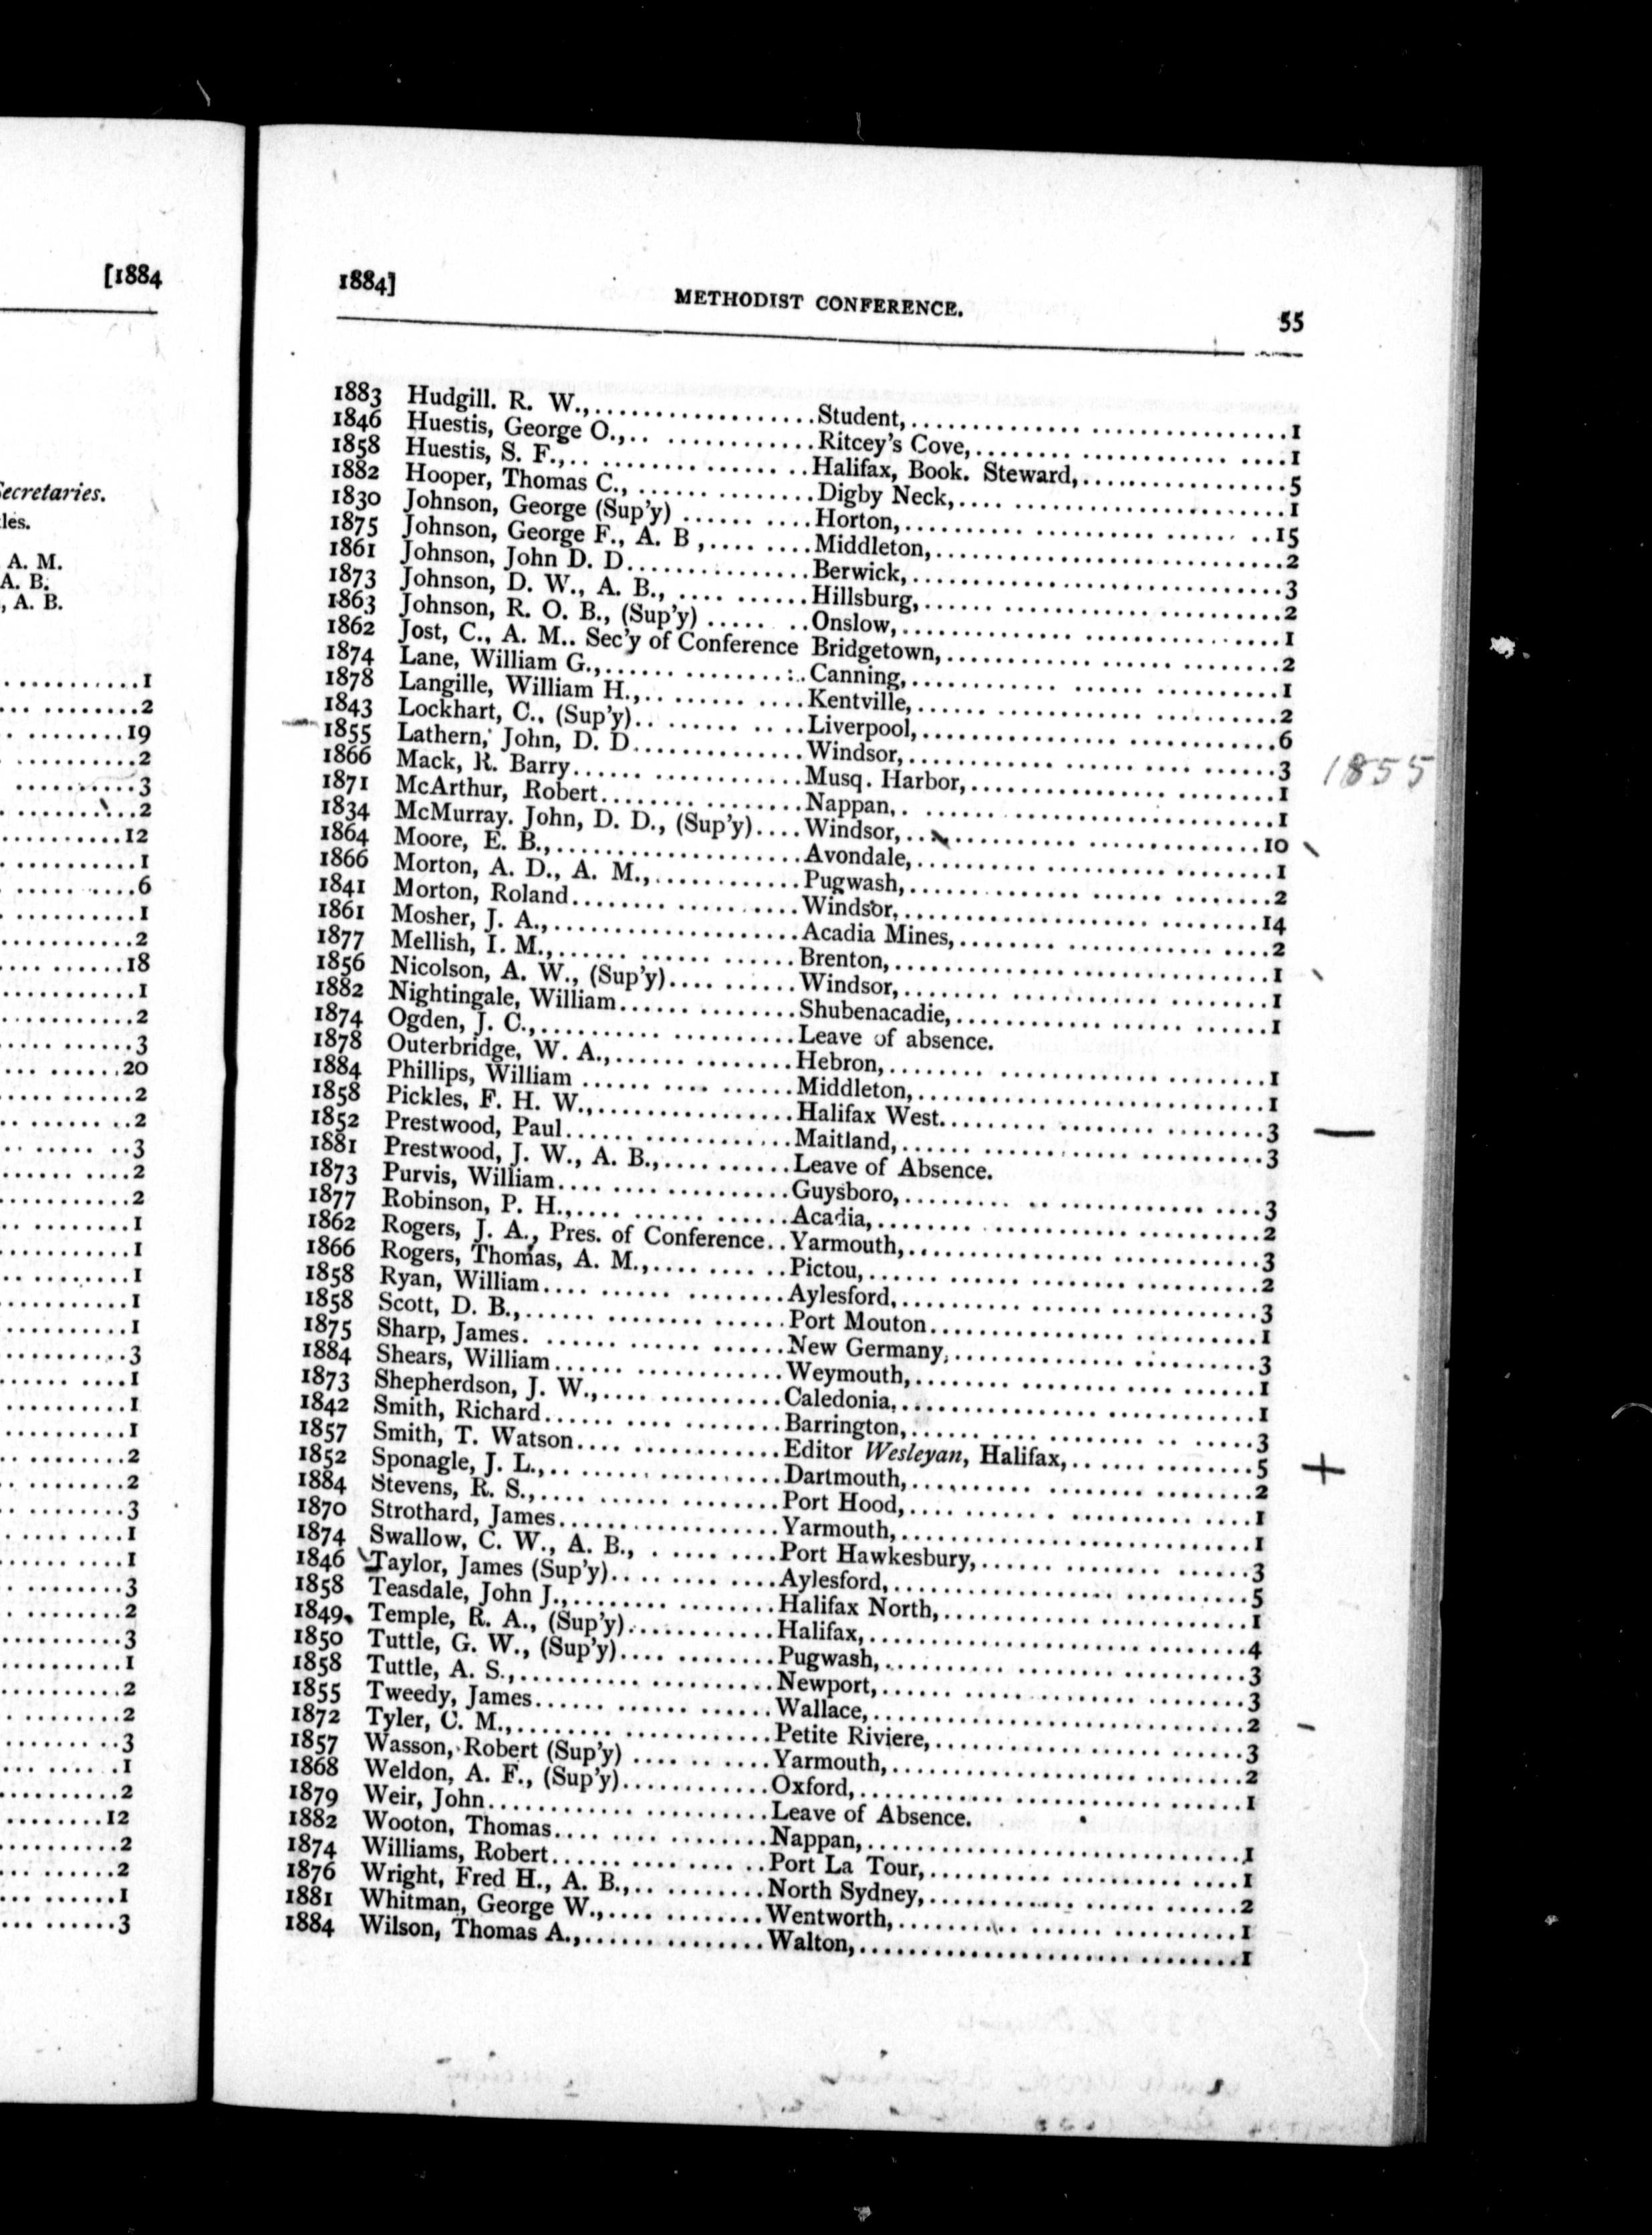 [1884
Secretaries.
les.
A. M.
A. B.
, A. B.
1
2
19
2
3
2
12
1
6
1
2
18
1
2
3
20
2
2
3
2
2
1
1
1
1
1
3
1
1
1
2
2
3
1
1
3
2
3
1
2
2
3
1
2
12
2
2
1
3
1884] METHODIST CONFERENCE. 55
1883 Hudgill. R. W.,..................Student,..............................1
1846 Huestis, George O.,.. ............Ritcey's Cove,..........................1
1858 Huestis, S. F.,.. .................Halifax, Book. Steward,.................5
1882 Hooper, Thomas C., ...............Digby Neck,.............................1
1830 Johnson, George (Sup'y) ..........Horton,................................15
1875 Johnson, George F., A. B ,........Middleton,..............................2
1861 Johnson, John D. D...............Berwick,................................3
1873 Johnson, D. W., A. B., ..........Hillsburg,..............................2
1863 Johnson, R. O. B., (Sup'y) ..... ..Onslow,.................................1
1862 Jost, C., A. M.. Sec'y of Conference Bridgetown,..........................2
1874 Lane, William G.,..............:..Canning,...............................1
1878 Langille, William H.,............Kentville,..............................2
1843 Lockhart, C., (Sup'y)............Liverpool,..............................6
1855 Lathern, John, D. D..............Windsor,................................3
1866 Mack, R. Barry...................Musq. Harbor,...........................1
1871 McArthur, Robert.................Nappan,.................................1
1834 McMurray. John, D. D., (Sup'y)....Windsor,..............................10
1864 Moore, E. B.,....................Avondale,...............................1
1866 Morton, A. D., A. M.,............Pugwash,................................2
1841 Morton, Roland...................Windsor,...............................14
1861 Mosher, J. A.,...................Acadia Mines,...........................2
1877 Mellish, I. M.,..................Brenton,................................1
1856 Nicolson, A. W., (Sup'y).........Windsor,................................1
1882 Nightingale, William.............Shubenacadie,...........................1
1874 Ogden, J. C.,....................Leave of absence.
1878 Outerbridge, W. A.,..............Hebron,.................................1
1884 Phillips, William ...............Middleton,..............................1
1858 Pickles, F. H. W.,...............Halifax West............................3
1852 Prestwood, Paul..................Maitland,...............................3
1881 Prestwood, J. W., A. B.,.........Leave of Absence.
1873 Purvis, William..................Guysboro,...............................3
1877 Robinson, P. H.,.................Acadia,.................................2
1862 Rogers, J. A., Pres. of Conference..Yarmouth,............................3
1866 Rogers, Thomas, A. M.,...........Pictou,.................................2
1858 Ryan, William....................Aylesford,..............................3
1858 Scott, D. B.,....................Port Mouton.............................1
1875 Sharp, James. ...................New Germany,............................3
1884 Shears, William..................Weymouth,...............................1
1873 Shepherdson, J. W.,..............Caledonia,..............................1
1842 Smith, Richard...................Barrington,.............................3
1857 Smith, T. Watson.................Editor Wesleyan, Halifax,...............5
1852 Sponagle, J. L.,.................Dartmouth,..............................2
1884 Stevens, R. S.,..................Port Hood,..............................1
1870 Strothard, James.................Yarmouth,...............................1
1874 Swallow, C. W., A. B., ..........Port Hawkesbury,........................3
1846 Taylor, James (Sup'y)............Aylesford,..............................5
1858 Teasdale, John J.,...............Halifax North,..........................1
1849 Temple, R. A., (Sup'y)...........Halifax,................................4
1850 Tuttle, G. W., (Sup'y)...........Pugwash,................................3
1858 Tuttle, A. S.,...................Newport,................................3
1855 Tweedy, James....................Wallace,................................2
1872 Tyler, C. M.,....................Petite Riviere,.........................3
1857 Wasson, Robert (Sup'y) ..........Yarmouth,...............................2
1868 Weldon, A. F., (Sup'y)...........Oxford,.................................1
1879 Weir, John.......................Leave of Absence.
1882 Wooton, Thomas...................Nappan,.................................1
1874 Williams, Robert.................Port La Tour,...........................1
1876 Wright, Fred H., A. B.,..........North Sydney,...........................2
1881 Whitman, George W.,..............Wentworth,..............................1
1884 Wilson, Thomas A.,...............Walton,.................................1
1855